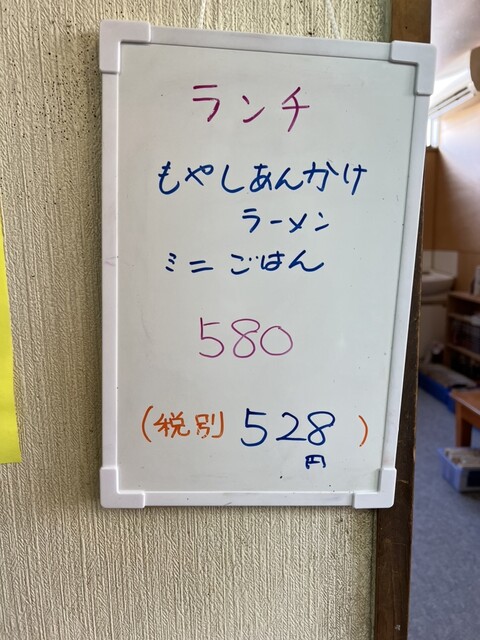 ランチ
もやしあんかけ
ラーメン
ミニごはん
580
(税別 528)
円